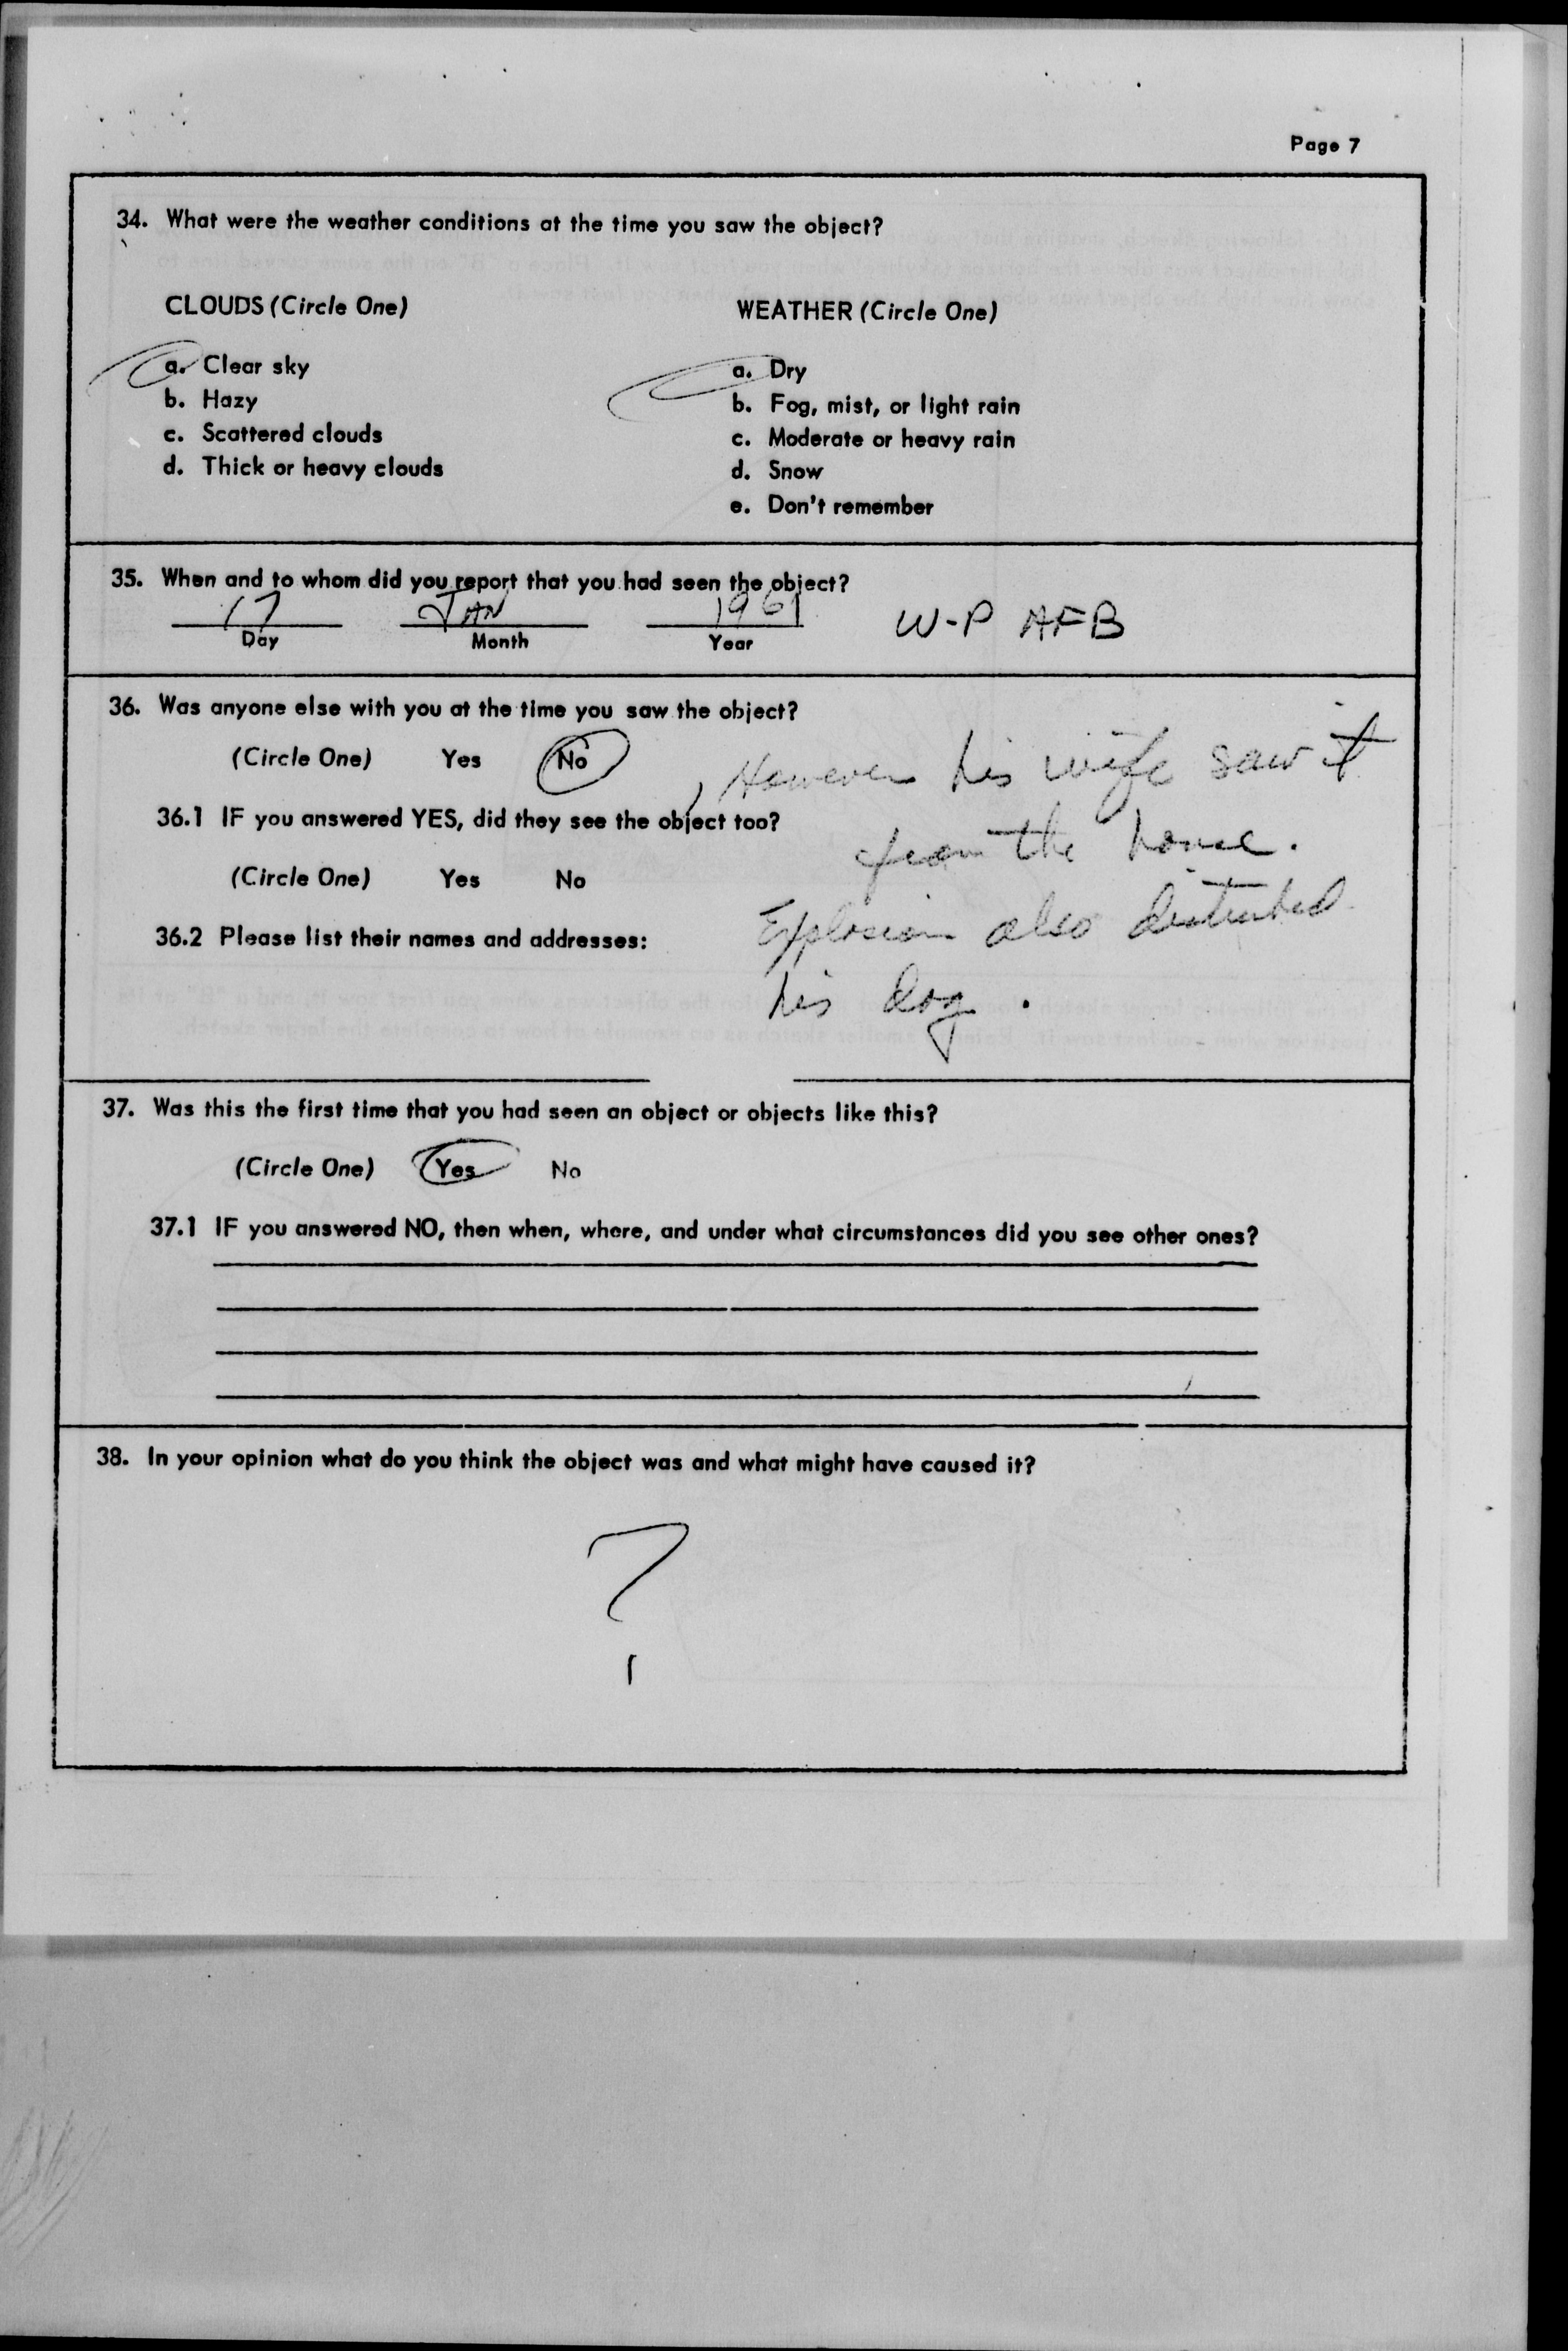 Page 7
34. What were the weather conditions at the time you saw the object?
CLOUDS (Circle One)
WEATHER (Circle One)
a. Clear sky
b. Hazy
c. Scattered clouds
d. Thick or heavy clouds
a. Dry
b. Fog, mist, or light rain
c. Moderate or heavy rain
d. Snow
e. Don't remember
35. When and to whom did you report that you had seen the object?
17 JAN 1961 W-P AFB
Day Month Year
36. Was anyone else with you at the time you saw the object?
(Circle One) Yes No
, However his wife saw it
from the house.
Explosion also disturbed
his dog.
36.1 IF you answered YES, did they see the object too?
(Circle One) Yes No
36.2 Please list their names and addresses:
37. Was this the first time that you had seen an object or objects like this?
(Circle One) Yes No
37.1 IF you answered NO, then when, where, and under what circumstances did you see other ones?
38. In your opinion what do you think the object was and what might have caused it?
?